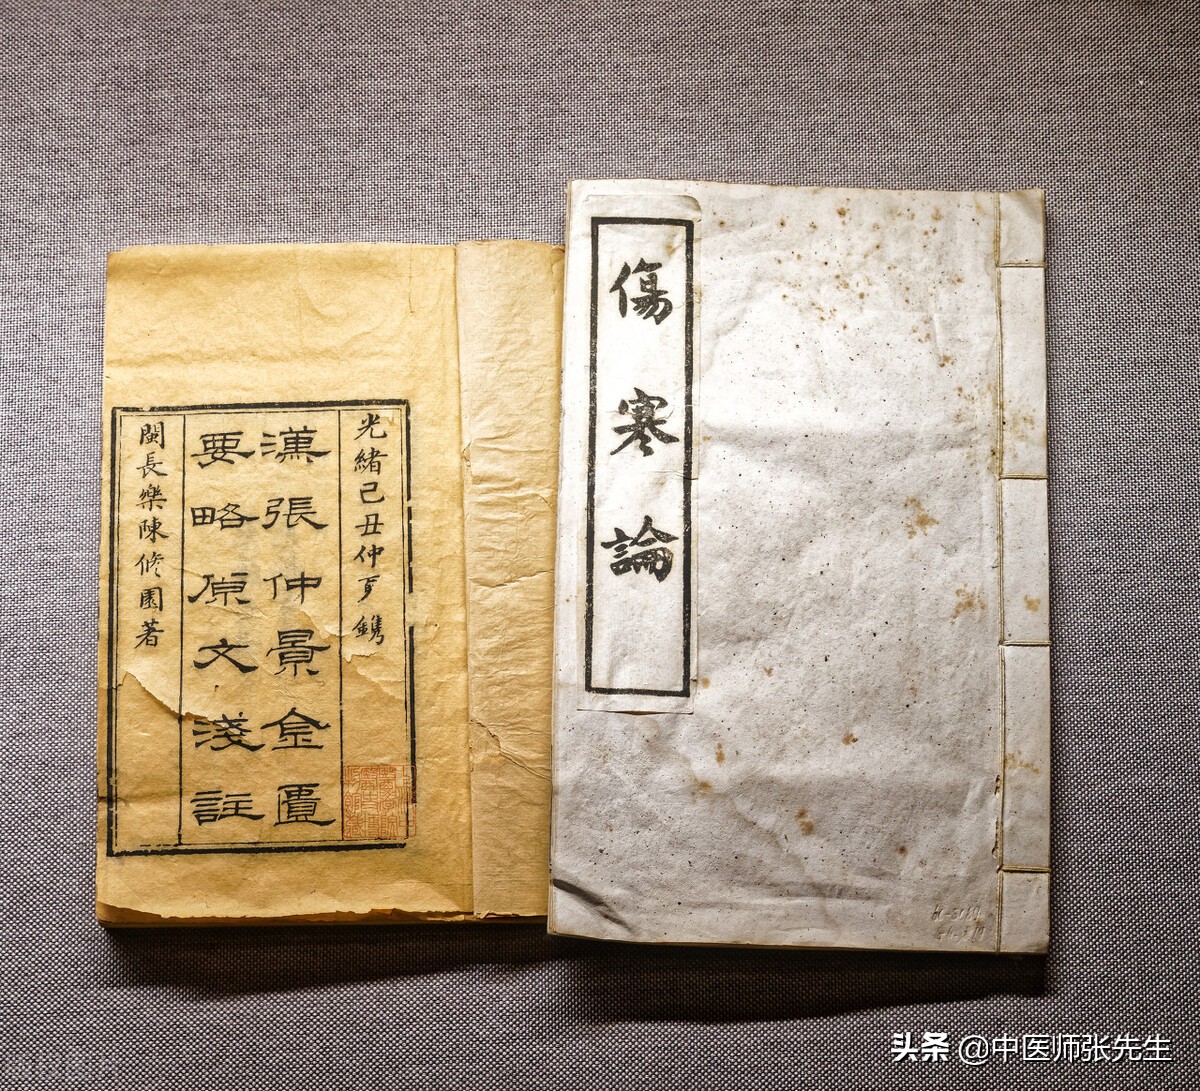 傷寒論
光緒己丑仲夏鐫
漢張仲景金匱
要略原文淺註
閩長樂陳修園著
头条 @中医师张先生